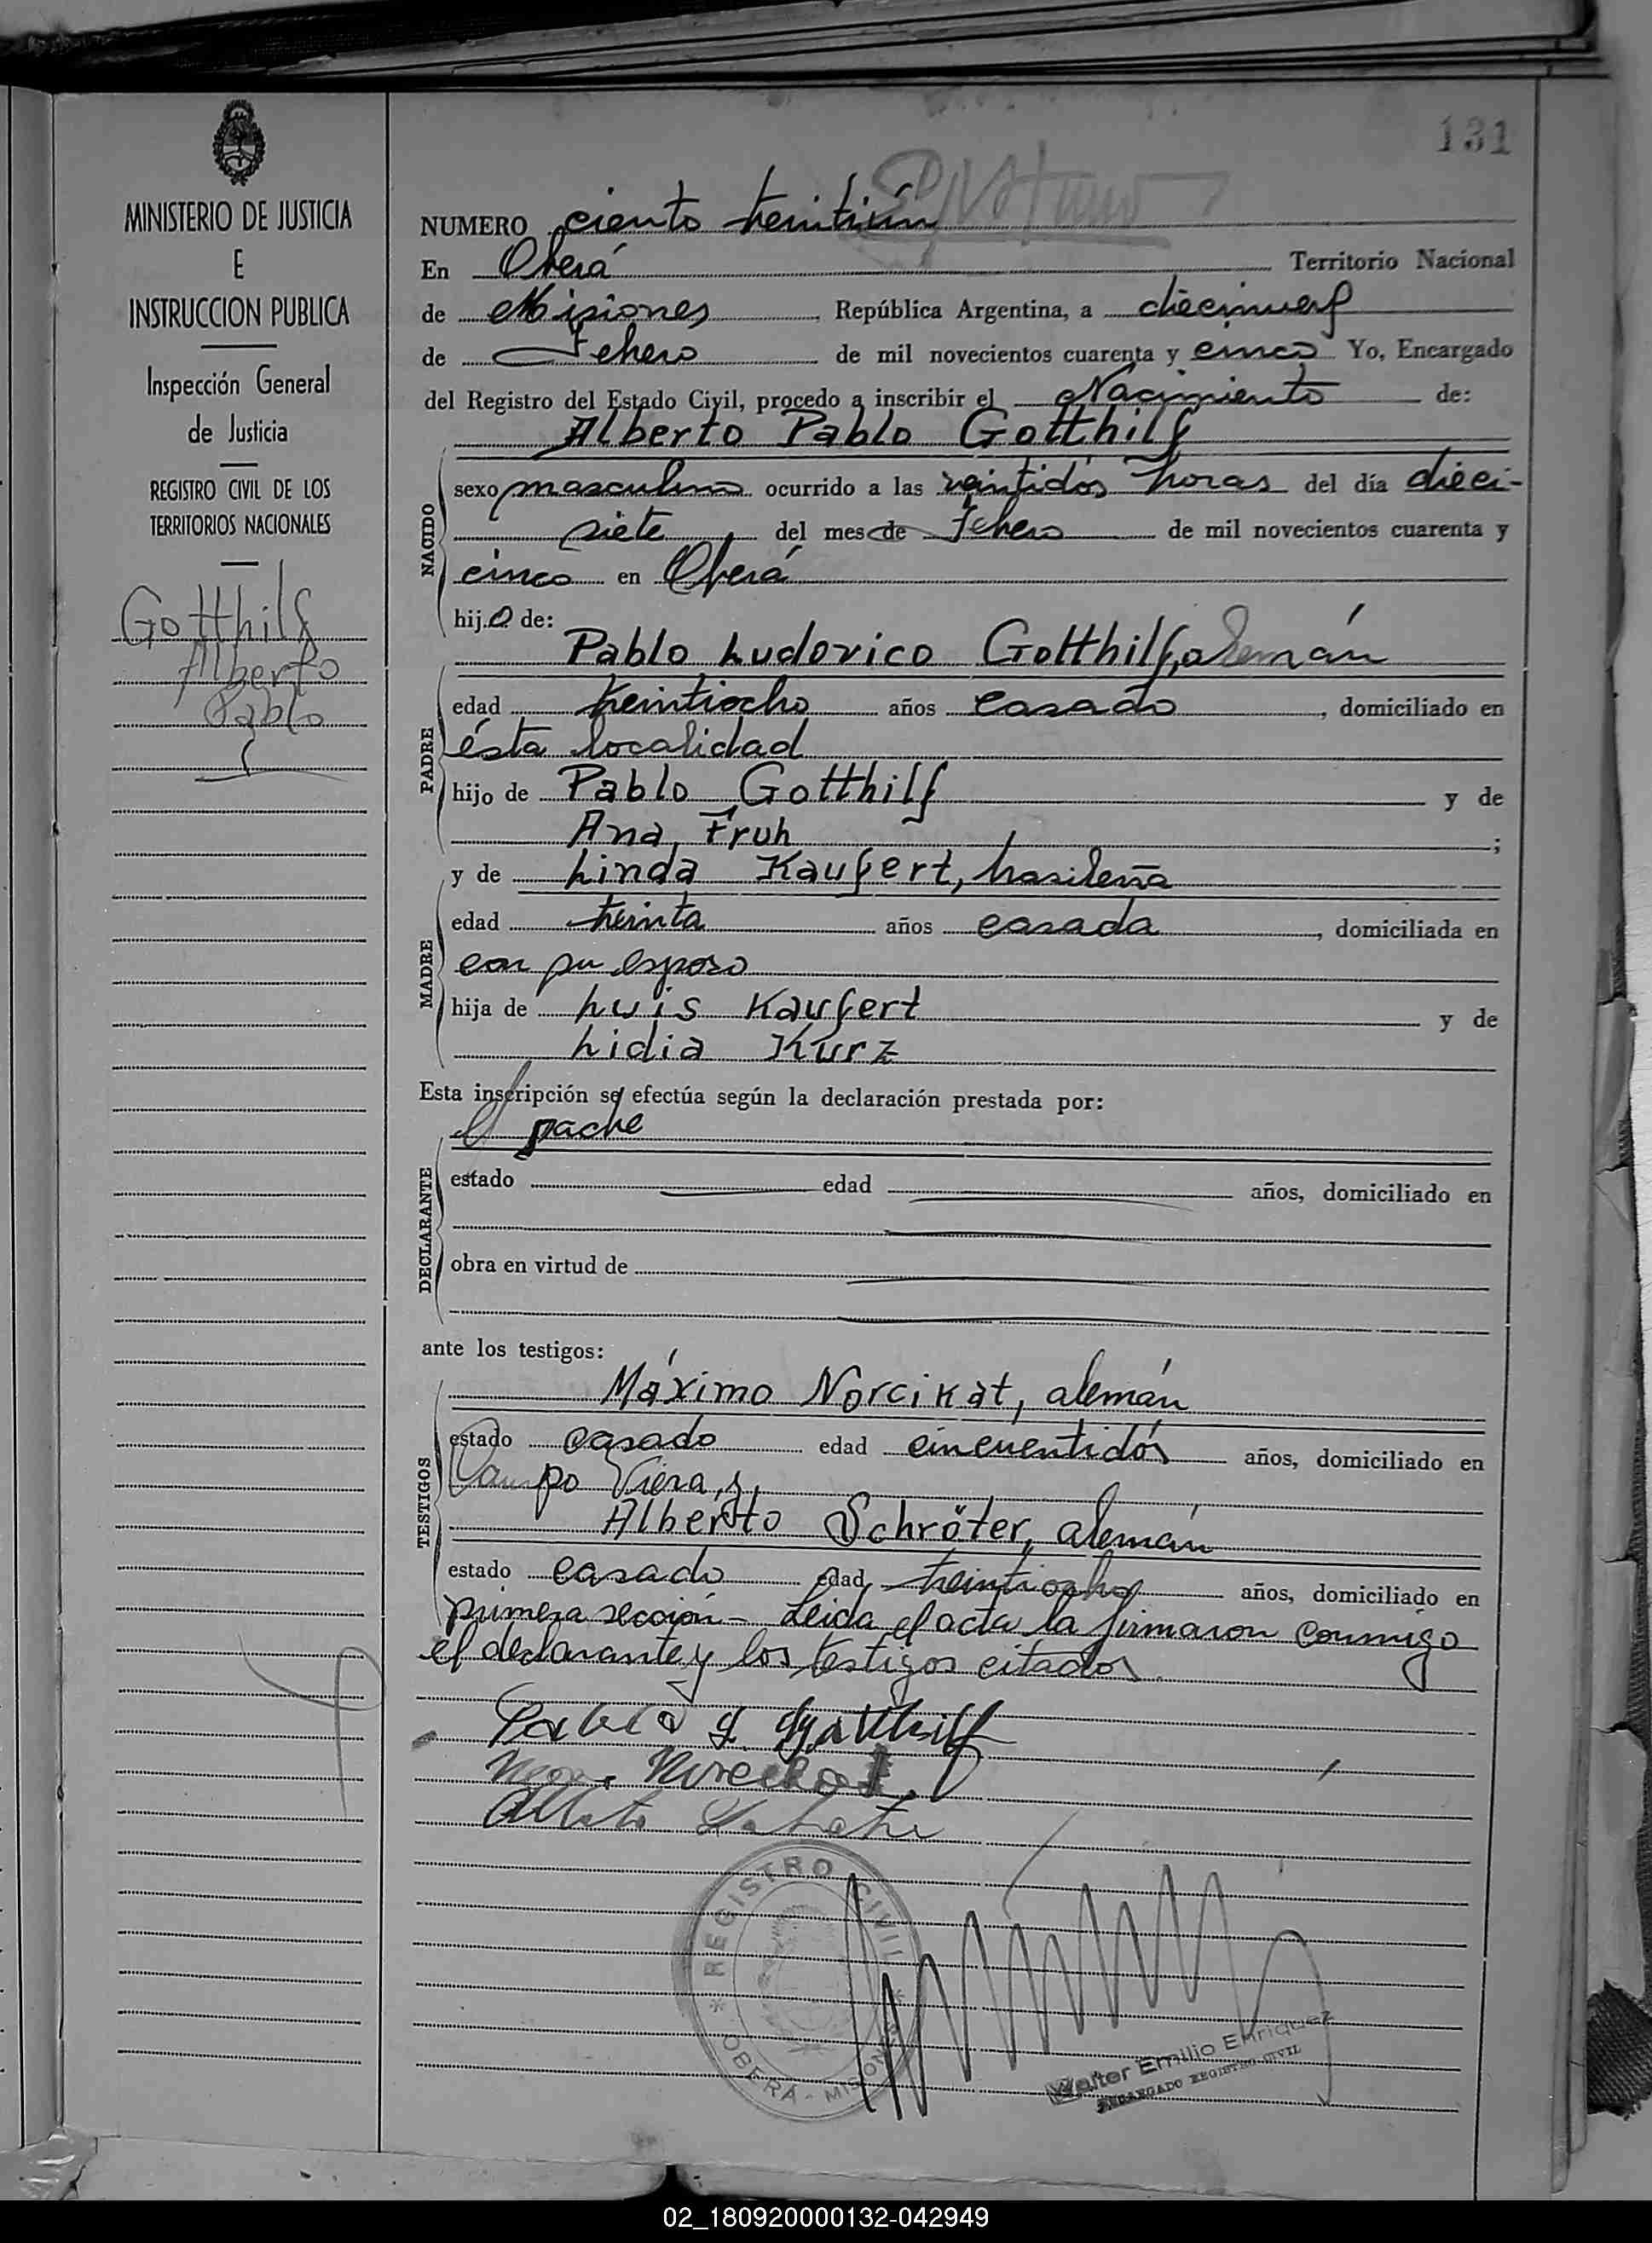 131
MINISTERIO DE JUSTICIA
E
INSTRUCCION PUBLICA
Inspección General
de Justicia
REGISTRO CIVIL DE LOS
TERRITORIOS NACIONALES
Gotthilf
Alberto
Pablo
NUMERO ciento treintiún
En Oberá Territorio Nacional
de Misiones, República Argentina, a diecinueve
de Febrero de mil novecientos cuarenta y cinco Yo, Encargado
del Registro del Estado Civil, procedo a inscribir el Nacimiento de:
Alberto Pablo Gotthilf
NACIDO
sexo masculino ocurrido a las veintidós horas del día dieci-
siete del mes de Febrero de mil novecientos cuarenta y
cinco en Oberá
hijo de:
Pablo Ludovico Gotthilf, alemán
PADRE
edad treintiocho años casado, domiciliado en
ésta localidad
hijo de Pablo Gotthilf y de
Ana Fruh;
y de Linda Kaufert, brasileña
MADRE
edad treinta años casada, domiciliada en
con su esposo
hija de Luis Kaufert y de
Lidia Kurz
Esta inscripción se efectúa según la declaración prestada por:
el padre
DECLARANTE
estado edad años, domiciliado en
obra en virtud de
ante los testigos:
Máximo Norcikat, alemán
TESTIGOS
estado casado edad cincuentidós años, domiciliado en
Campo Viera, y
Alberto Schröter, alemán
estado casado edad treintiocho años, domiciliado en
primera sección - Leida el acta la firmaron conmigo
el declarante y los testigos citados.
Pablo L. Gotthilf
Alberto
REGISTRO CIVIL
OBERÁ - MISIONES
Walter Emilio Enriquez
ENCARGADO REGISTRO CIVIL
02_180920000132-042949